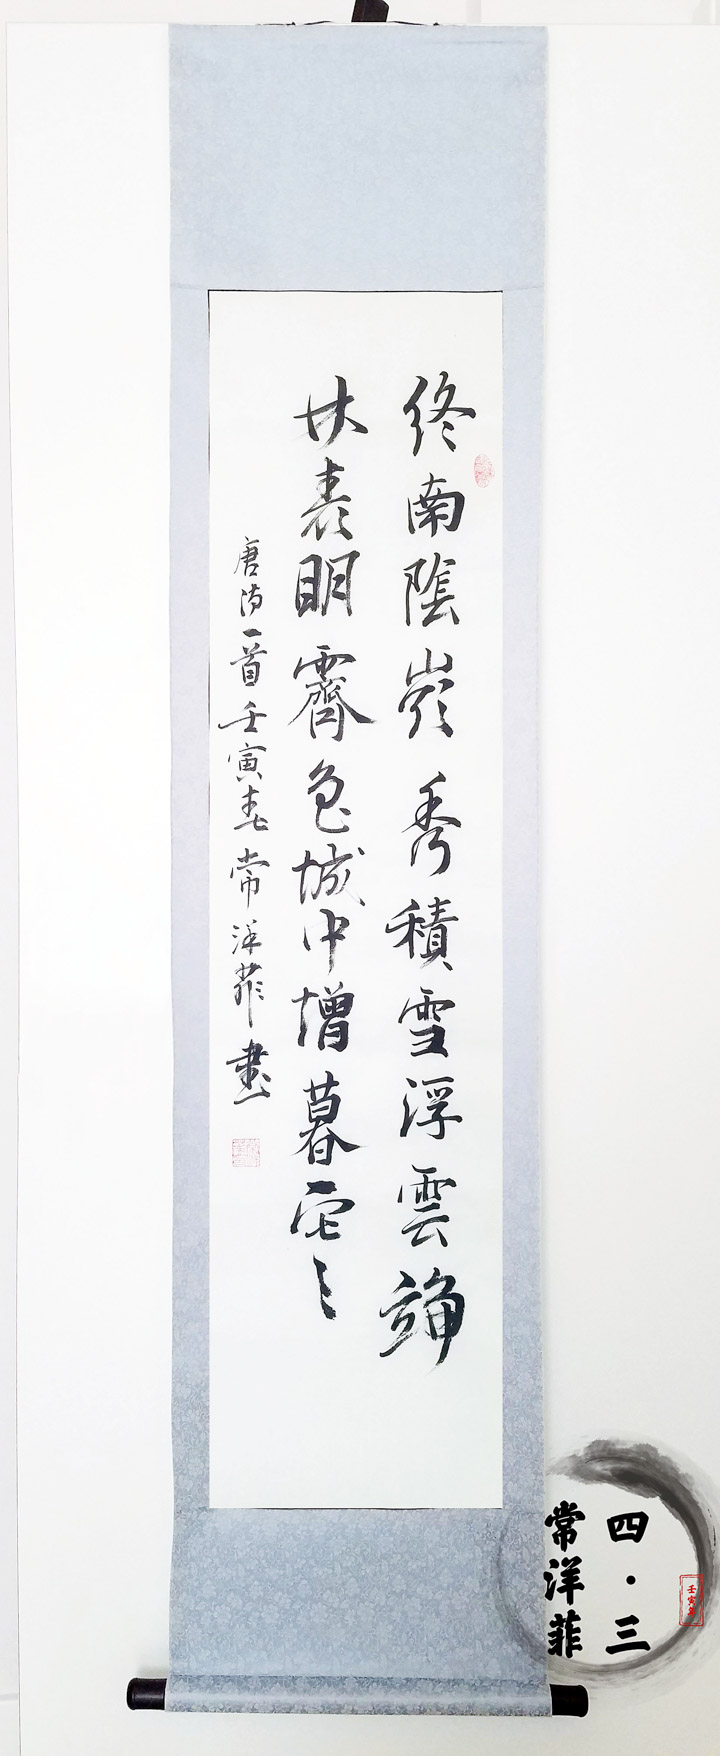 終南陰嶺秀積雪浮雲端
林表明霽色城中增暮寒
唐詩一首壬寅春常洋菲書
四·三
常洋菲
壬寅年